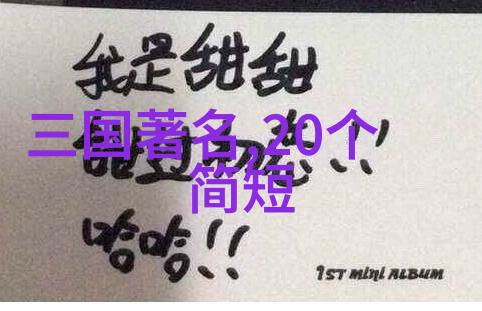 我是甜甜
三国著名,20个
!!
简短
哈哈!!
1ST MINI ALBUM